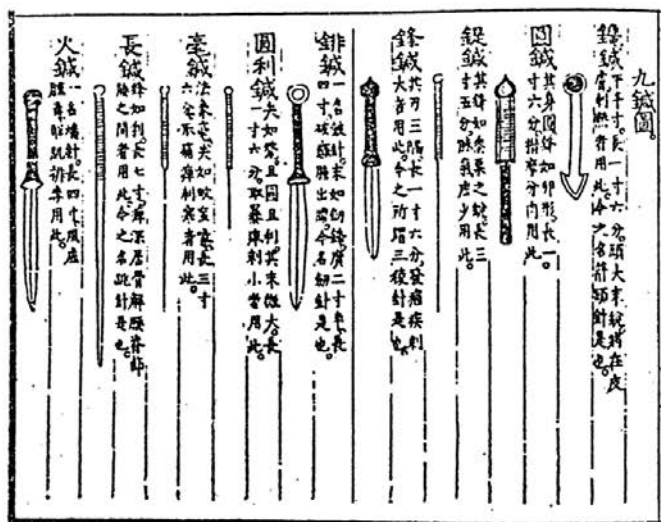 九鍼圖
鑱鍼 平半寸。長一寸六分。頭大末銳。病在皮
膚刺熱者用此。今之名箭頭針是也。
圓鍼 其身圓。鋒如卵形。長一
寸六分。揩摩分肉用此。
鍉鍼 其鋒如黍粟之銳。長三
寸五分。脉氣虛少用此。
鋒鍼 其刃三隅。長一寸六分。發痼疾刺
大者用此。今之所謂三稜針是也。
鈹鍼 一名鈹針。末如劍鋒。廣二寸半。長
四寸。破癰腫出膿。今名劍針是也。
圓利鍼 尖如氂。且圓且利。其末微大。長
一寸六分。取暴痺刺小者用此。
毫鍼 法象毫。尖如蚊虻喙。長三寸
六分。取痛痺刺寒者用此。
長鍼 鋒如利。長七寸。痺深居骨解腰脊節
腠之間者用此。今之名跳針是也。
火鍼 一名燔針。長四寸。風虛
腫毒。解肌排毒用此。